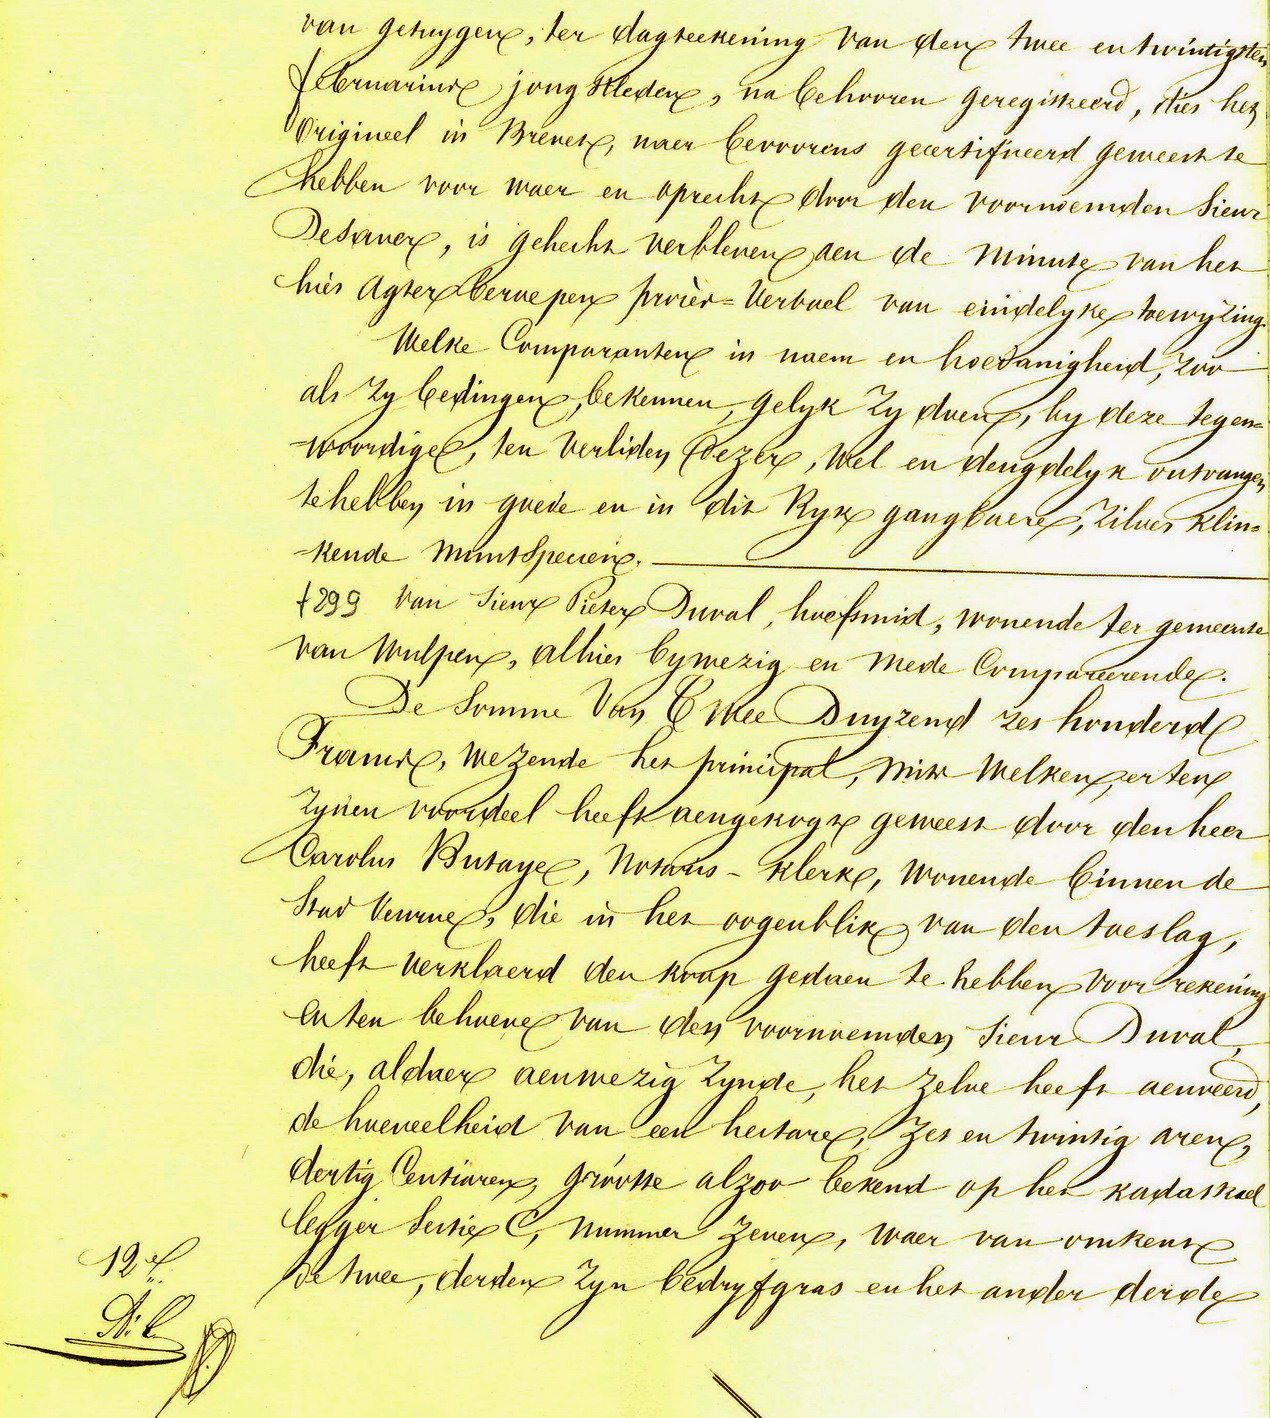 van getuygen, ter dagteekening van den twee en twintigsten
februarius jongstleden, na behooren geregistreerd, dies het
origineel in Brevet, naer bevoorens gecertifieerd geweest te
hebben voor waer en oprecht door den voornoemden Sieur
Desaver, is gehecht verbleven aen de Minute van het
hier agter beroepen procès=Verbael van eindelyke toewyzing.
Welke Comparanten in naem en hoedanigheid, zoo
als zy bedingen, bekennen, gelyk zy doen, by deze tegen=
woordige, ten Verliden dezer, wel en deugdelyk ontvangen
te hebben in goede en in dit Ryk gangbaere, zilver klin=
kende muntspecien.
f 299 Van Sieur Pieter Duval, hoefsmid, wonende ter gemeente
van Wulpen, alhier bywezig en mede Compareerende.
De Somme Van Twee Duyzend zes honderd
Francs, wezende het principal, mits welken, er ten
zynen voordeel heeft aengekogt geweest door den heer
Carolus Butaye, Notaris-klerk, wonende binnen de
Stad Veurne, die in het oogenblik van den toeslag,
heeft verklaerd den koop gedaen te hebben voor rekening
en ten behoeve van den voornoemden Sieur Duval,
die, aldaer aenwezig zynde, het zelve heeft aenveerd,
de hoeveelheid van een hectare, zes en twintig aren,
dertig Centiaren, grootte alzoo bekend op het kadastrael
legger Sectie C, Nummer zeven, waer van omtrent
de twee, derden zyn bedryfgras en het ander derde
12e